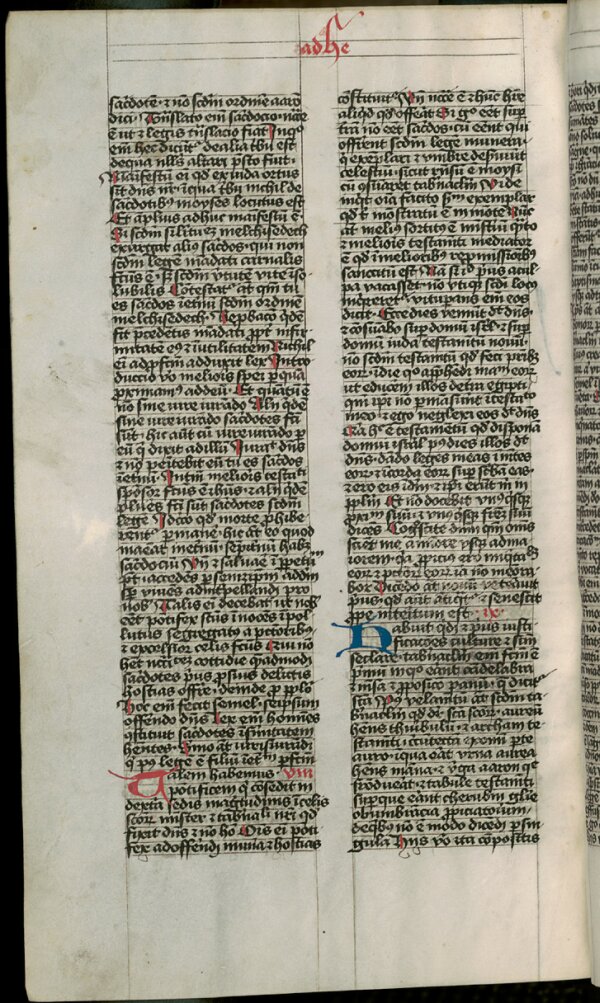 ad he
sacdotē · ⁊ nō scdm ordinē aarō
dici · Trāslato em̄ sacdocio · ncē
ē ut ⁊ legis trāslacio fiat In qͦ
em̄ hec dicūtʳ de alia tbu est
de qua nllꝰ altari p̄sto fuit ·
Manifestū ei qd ex iuda ortus
sit dns nr̄ · ī qua tbu nichil de
sacdotibꝫ moyses locutus est
Et āplius adhuc māifestū ē ·
Si scdm silitudēꝫ melchisedech
exurgat aliꝰ sacdos · qui non
scdm legē mādati carnalis
fctus ē · sꝫ scdm v̄tutē vite īso
lubilis Cōtestatʳ at qm̄ tu
es sacdos ī etnū scdm ordinē
melchisedech · Repbacō qdē
fit p̄cedētis mādati ꝓpt infir
mitatē eiꝰ ⁊ īutilitatem Nichil
ei ad ꝑfctm̄ adduxit lex Intro
duccio vͦ melioris spei ꝑ quā
ꝓximamꝰ ad deū · Et quātū ē
nō sine iure iurādo Alij qdē
sine iure iurādo sacdotes fcī
sūt · hic aūt cū iure iurādo ꝑ
eū q̄ dixit ad illū Iurauitʳ dns
⁊ nō penitebit eū tu es sacdos
ī etnū · In tm̄ melioris testatⁱ
spōsor fctus ē ihūs · ⁊ alij qdē
plures fcī sūt sacdotes scdm
legē Idcco qd morte ꝓhibe
rentʳ ꝑmane · hic at eo quod
maneat ī etnū · sepitnū habꝫ
sacdociū Vn̄ ⁊ saluare ī ꝑpetuū
pt · accedēs ꝑ semꝫ ipm̄ ad dm̄
sꝑ viuēs ad int̄pellandū pro
nobꝫ Talis ei decebat ut nobꝫ
eēt potifex scūs ī nocēs īpol
lutus segregatꝰ a pctoribꝫ
⁊ excelsior celis fctus Qui nō
het ncitatē cottidie quēadmodū
sacdotes p̄us ꝓ suis delictis
hostias offre · deinde ꝓ pplo
Hoc em̄ fecit semel · seipsum
offrendo dns Lex em̄ homīes
ꝯstituit sacdotes īfirmitatem
hentes · Smo āt iuris iurādi
q̄ pꝰ legē ē filiū ī etnū ꝑfctm
Talem habemus · VIII
potificem q̄ cōsedit in
dextra sedis magitudinis ī celis
scorꝫ mister ⁊ tabnaclī ūri qd
fixit dns ⁊ nō hō Ois ei poti
fex ad offrendū muna ⁊ hostias
cōstituitʳ Vn̄ ncce ē ⁊ hūc hre
aliqd qd offerat Si gͦ eēt supʳ
trā nō eēt sacdos · cū eēnt qui
offrent scdm legē munera ·
qi exēplari ⁊ vmbre deseruiūt
celestiū · sicut rn̄sū ē moysi
cū ꝯsūaret tabnaclm Vide
inqit oīa facito scdm exemplar
qd tⁱ mostratū ē in mōte Nūc
at melius sortitꝰ ē misteriū q̄nto
⁊ melioris testamti mediator
ē qd ī melioribꝫ repmissiōibꝫ
sancitū est Nā si id p̄us cul
pa vacasset · nō vtiqꝫ scdi locꝰ
inqreretʳ · vituꝑans em̄ eos
dicit · Ecce dies veniūt dt dns ·
⁊ cōsumabo sup domū isrl ⁊ sup
domū iuda testamtū nouū ·
nō scdm testamtū qd feci pribꝫ
eorꝫ · ī die qͣ apphendi manū eorꝫ
ut educerem illos de tra egipti
qm̄ ipi nō ꝑmāserūt ī testamto
meo · ⁊ ego neglexi eos dt dns
Qa hͦ ē testamētū qd disponā
domui isrl pꝰ dies illos dt
dns · dādo leges meas ī mētes
eorꝫ · ⁊ ī corda eorꝫ sup scbā eas ·
⁊ ero eis ī dm̄ · ⁊ ipi erūt m in
pplm̄ Et nō docebit vnꝰqsqꝫ
ꝓximū suū ⁊ vnꝰqsqꝫ frēm suū
dicēs Cognosce dnm · qm̄ oms
sciēt me · a minore vsqꝫ ad ma
iorem · qa ꝓpicius ero iniqtatibꝫ
eorꝫ ⁊ pctorꝫ eorꝫ iā nō memora
bor Dicedo āt nouū vetauit
p̄us · qd aūt atiqʳ ⁊ senescit
ꝓpe interitum est · ix ·
Habuit qdē ⁊ p̄us iusti
ficaciōes culture ⁊ scm̄
seclare · tabnaclm̄ em̄ fctm ē
p̄mū in qͦ erāt cādelabra
⁊ mēsa ⁊ ꝓposico panū · q̄ dicūtʳ
scā Pꝰ velamtū āt scdm ta
bnaclm qd dr scā scorꝫ · aureū
hens thuribulū · ⁊ archam te
stamti · circūtectā ex omī ꝑte
auro · ī qua erāt vrna aurea
hens māna · ⁊ vga aaron q̄
frōduerat · ⁊ tabule testamti
supqꝫ eāt cherubin glīe
obumbrācia ꝓpiciatorium ·
de qbꝫ nō ē modo dicēdū ꝑ sin
gula Hijs vͦ ita cōpositis